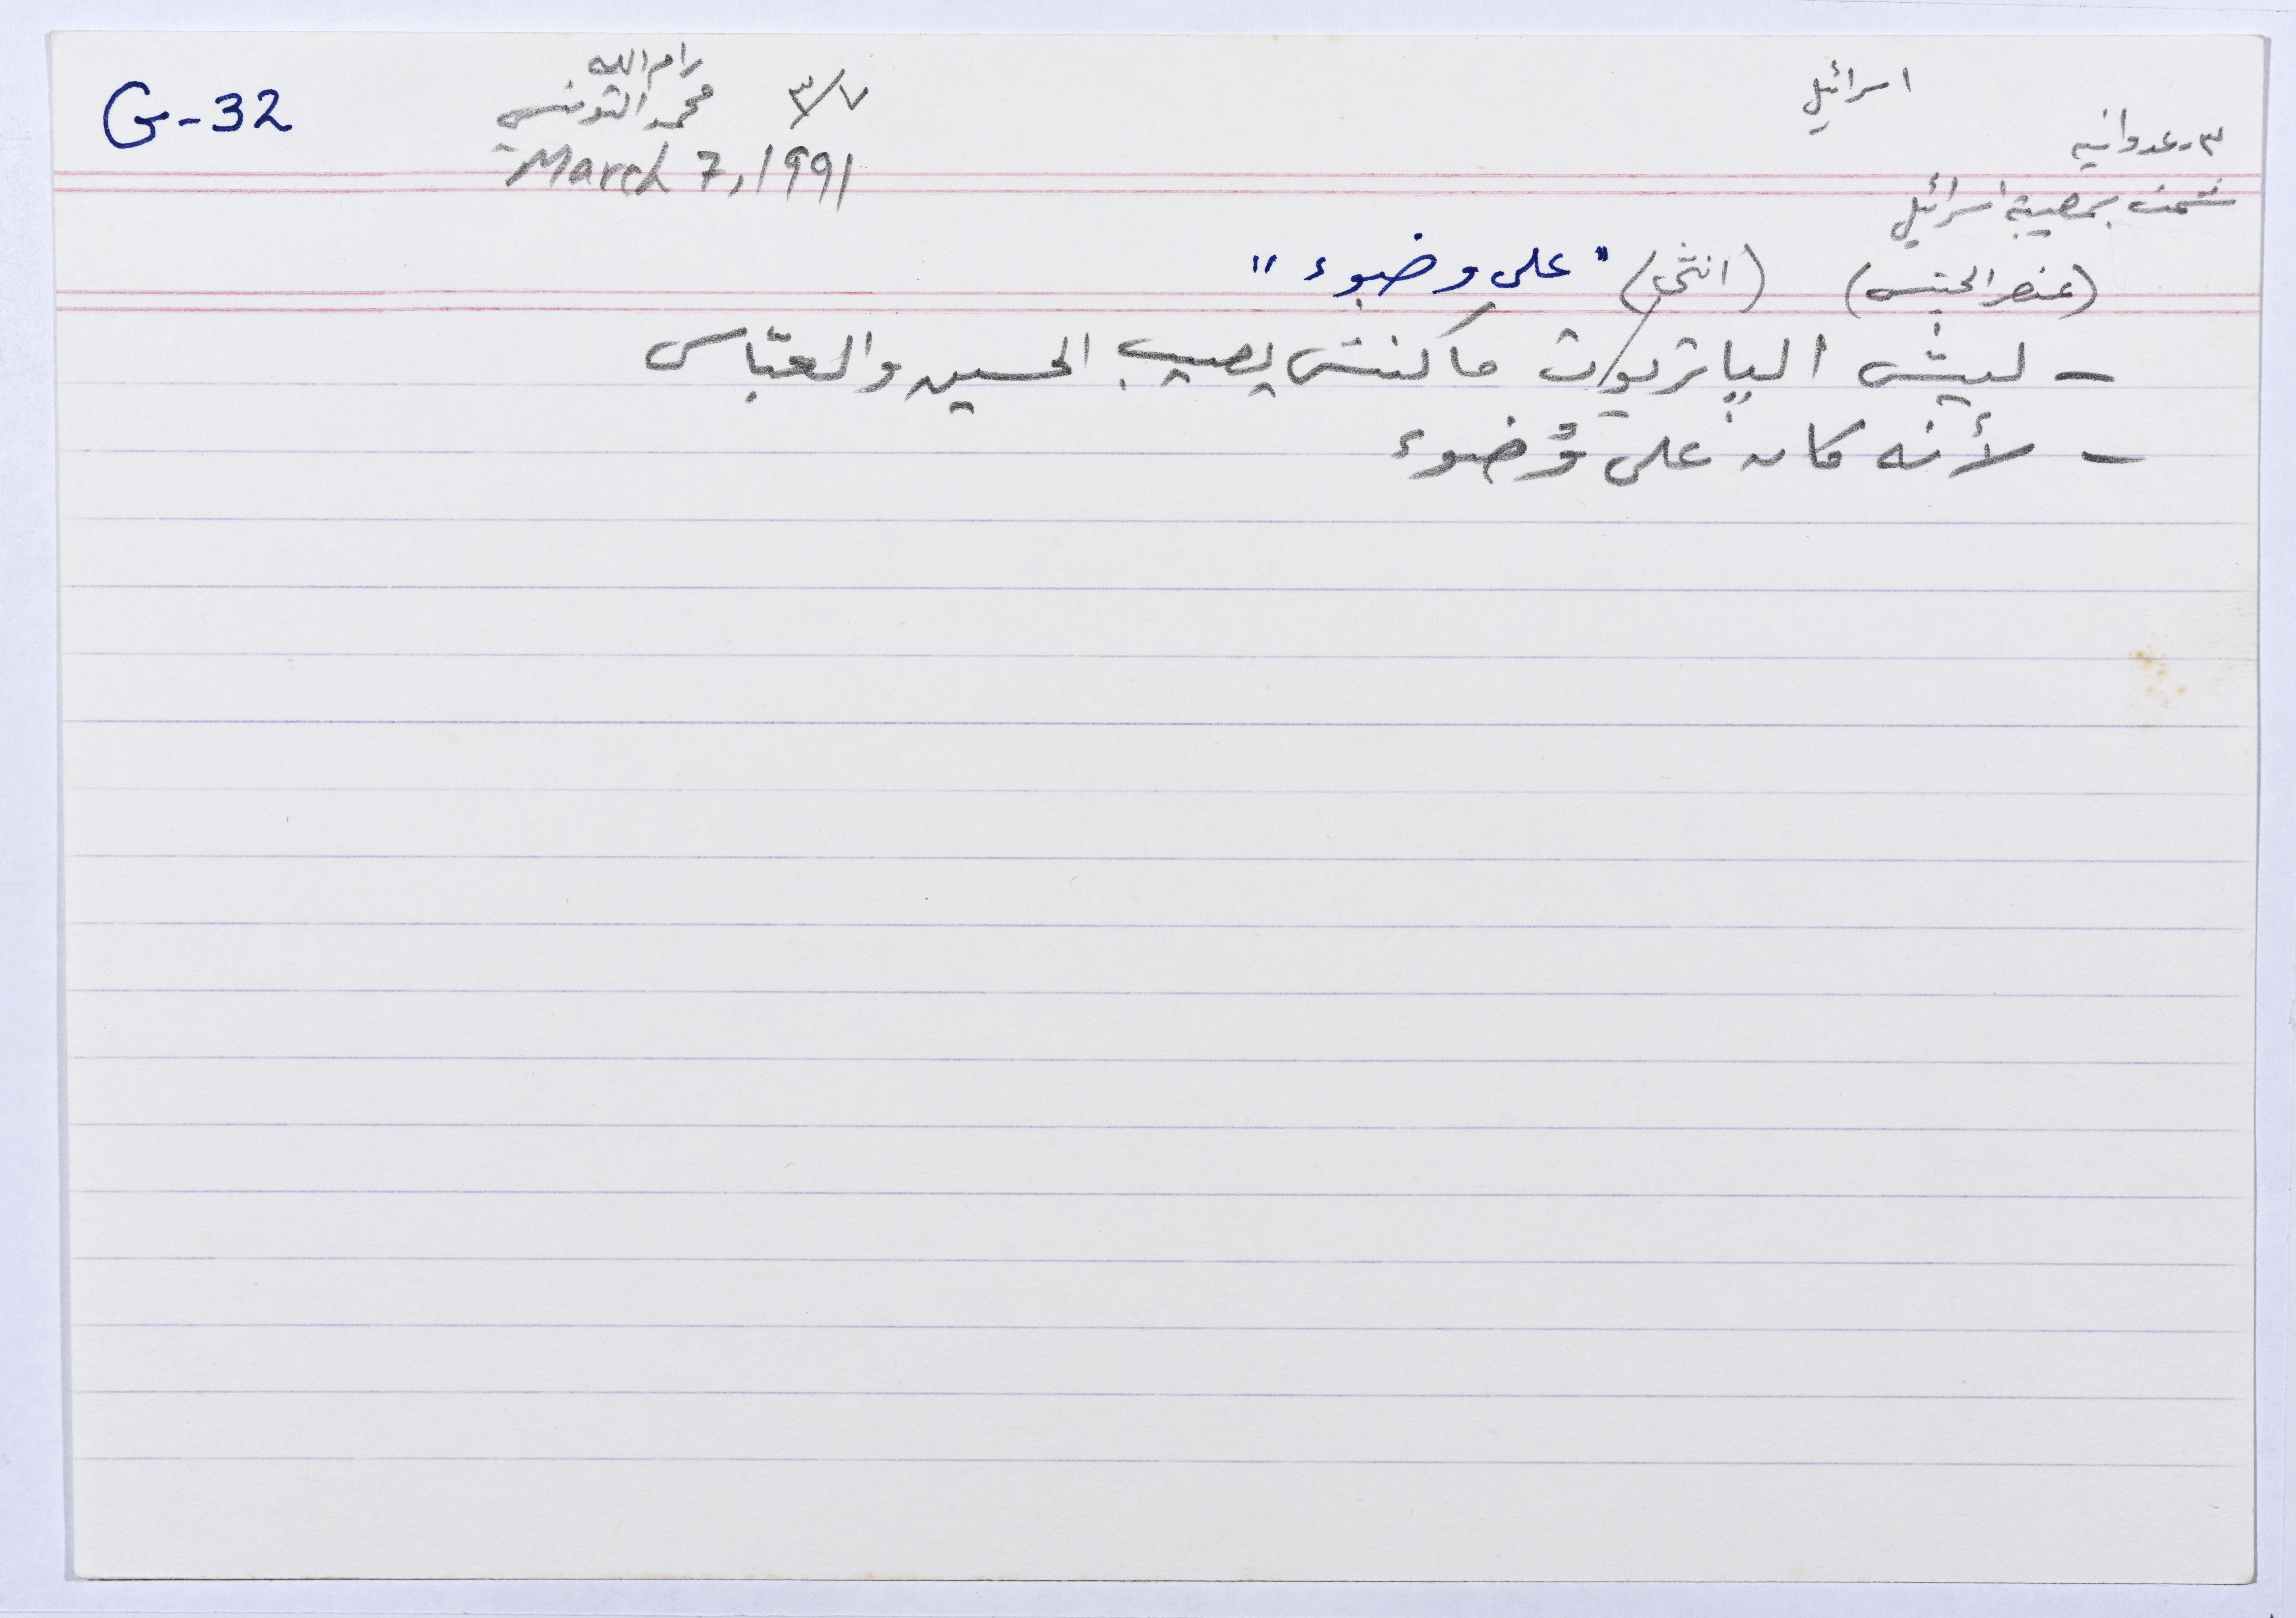 G-32
رام الله
محمد التونسي ٣/٧
March 7, 1991
اسرائيل
٣- عدوانيه
شمت بمصيبة اسرائيل
(عنصر الجنس) (انثى) "على وضوء"
- ليش الپاتريوت ما كنش يصيب الحسين والعبّاس
- لأنه كان على وُضوء